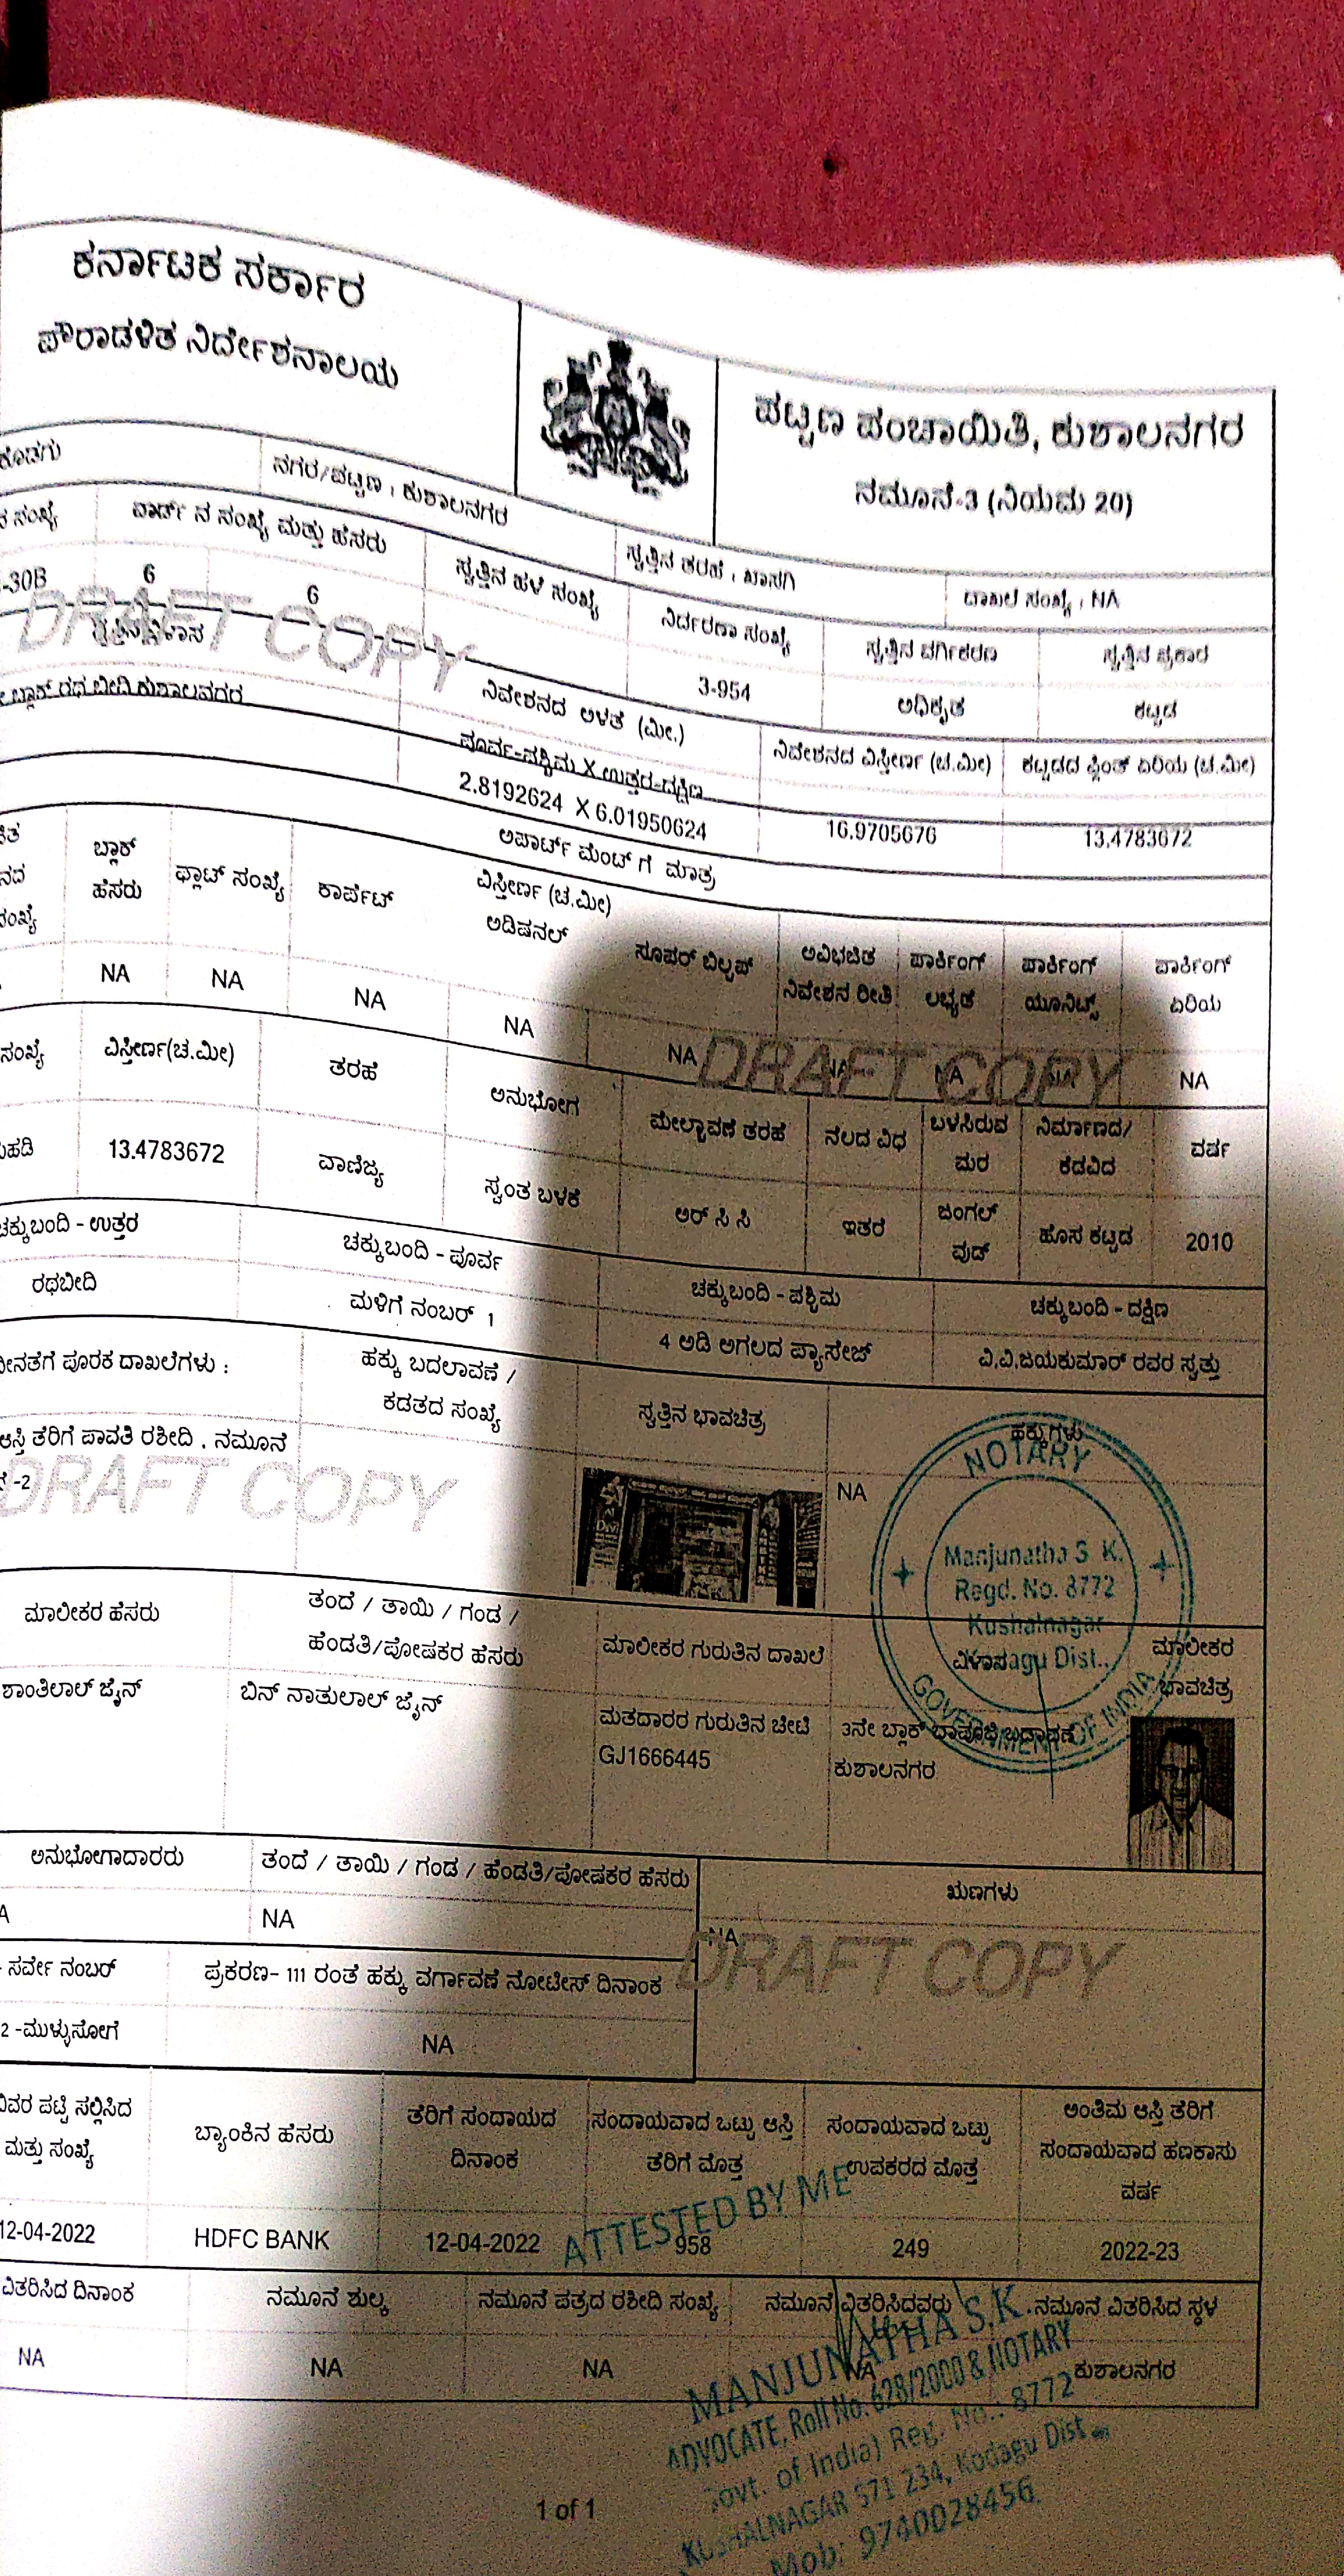 ಕರ್ನಾಟಕ ಸರ್ಕಾರ
ಪೌರಾಡಳಿತ ನಿರ್ದೇಶನಾಲಯ
ಪಟ್ಟಣ ಪಂಚಾಯಿತಿ, ಕುಶಾಲನಗರ
ನಮೂನೆ-3 (ನಿಯಮ 20)
ಕೊಡಗು
ನಗರ/ಪಟ್ಟಣ : ಕುಶಾಲನಗರ
ಸ್ವತ್ತಿನ ತರಹೆ : ಖಾಸಗಿ
ದಾಖಲೆ ಸಂಖ್ಯೆ : NA
ಸಂಖ್ಯೆ
ವಾರ್ಡ್ ನ ಸಂಖ್ಯೆ ಮತ್ತು ಹೆಸರು
ಸ್ವತ್ತಿನ ಹಳೆ ಸಂಖ್ಯೆ
ನಿರ್ದರಣಾ ಸಂಖ್ಯೆ
ಸ್ವತ್ತಿನ ವರ್ಗೀಕರಣ
ಸ್ವತ್ತಿನ ಪ್ರಕಾರ
-30B
6
6
3-954
ಅಧಿಕೃತ
ಕಟ್ಟಡ
DRAFT COPY
ನಿವೇಶನದ ಅಳತೆ (ಮೀ.)
ನಿವೇಶನದ ವಿಸ್ತೀರ್ಣ (ಚ.ಮೀ)
ಕಟ್ಟಡದ ಪ್ಲಿಂತ್ ಏರಿಯ (ಚ.ಮೀ)
ಬ್ಲಾಕ್ ರಥ ಬೀದಿ ಕುಶಾಲನಗರ
ಪೂರ್ವ-ಪಶ್ಚಿಮ X ಉತ್ತರ-ದಕ್ಷಿಣ
2.8192624 X 6.01950624
16.9705676
13.4783672
ಅಪಾರ್ಟ್ ಮೆಂಟ್ ಗೆ ಮಾತ್ರ
ಬ್ಲಾಕ್
ಹೆಸರು
ಫ್ಲಾಟ್ ಸಂಖ್ಯೆ
ವಿಸ್ತೀರ್ಣ (ಚ.ಮೀ)
ಕಾರ್ಪೆಟ್
ಅಡಿಷನಲ್
ಸೂಪರ್ ಬಿಲ್ಟಪ್
ಅವಿಭಜಿತ
ನಿವೇಶನ ರೀತಿ
ಪಾರ್ಕಿಂಗ್
ಲಭ್ಯತೆ
ಪಾರ್ಕಿಂಗ್
ಯೂನಿಟ್ಸ್
ಪಾರ್ಕಿಂಗ್
ಏರಿಯ
NA
NA
NA
NA
NA
NA
NA
NA
NA
DRAFT COPY
ಸಂಖ್ಯೆ
ವಿಸ್ತೀರ್ಣ(ಚ.ಮೀ)
ತರಹೆ
ಅನುಭೋಗ
ಮೇಲ್ಛಾವಣೆ ತರಹೆ
ನೆಲದ ವಿಧ
ಬಳಸಿರುವ
ಮರ
ನಿರ್ಮಾಣದ/
ಕೆಡವಿದ
ವರ್ಷ
13.4783672
ವಾಣಿಜ್ಯ
ಸ್ವಂತ ಬಳಕೆ
ಆರ್ ಸಿ ಸಿ
ಇತರ
ಜಂಗಲ್
ವುಡ್
ಹೊಸ ಕಟ್ಟಡ
2010
ಚಕ್ಕುಬಂದಿ - ಉತ್ತರ
ಚಕ್ಕುಬಂದಿ - ಪೂರ್ವ
ಚಕ್ಕುಬಂದಿ - ಪಶ್ಚಿಮ
ಚಕ್ಕುಬಂದಿ - ದಕ್ಷಿಣ
ರಥಬೀದಿ
ಮಳಿಗೆ ನಂಬರ್ 1
4 ಅಡಿ ಅಗಲದ ಪ್ಯಾಸೇಜ್
ವಿ.ವಿ.ಜಯಕುಮಾರ್ ರವರ ಸ್ವತ್ತು
ಪೂರಕ ದಾಖಲೆಗಳು :
ಹಕ್ಕು ಬದಲಾವಣೆ /
ಕಡತದ ಸಂಖ್ಯೆ
ಸ್ವತ್ತಿನ ಭಾವಚಿತ್ರ
ಹಕ್ಕುಗಳು
ಆಸ್ತಿ ತೆರಿಗೆ ಪಾವತಿ ರಶೀದಿ , ನಮೂನೆ
-2
NA
DRAFT COPY
NOTARY
Manjunatha S K.
Regd. No. 8772
Kushalnagar
Kodagu Dist.,
GOVERNMENT OF INDIA
ಮಾಲೀಕರ ಹೆಸರು
ತಂದೆ / ತಾಯಿ / ಗಂಡ /
ಹೆಂಡತಿ/ಪೋಷಕರ ಹೆಸರು
ಮಾಲೀಕರ ಗುರುತಿನ ದಾಖಲೆ
ವಿಳಾಸ
ಮಾಲೀಕರ
ಭಾವಚಿತ್ರ
ಶಾಂತಿಲಾಲ್ ಜೈನ್
ಬಿನ್ ನಾತುಲಾಲ್ ಜೈನ್
ಮತದಾರರ ಗುರುತಿನ ಚೀಟಿ
GJ1666445
3ನೇ ಬ್ಲಾಕ್ ಬಾಪೂಜಿ ಬಡಾವಣೆ
ಕುಶಾಲನಗರ
ಅನುಭೋಗಾದಾರರು
ತಂದೆ / ತಾಯಿ / ಗಂಡ / ಹೆಂಡತಿ/ಪೋಷಕರ ಹೆಸರು
ಋಣಗಳು
NA
NA
DRAFT COPY
ಸರ್ವೇ ನಂಬರ್
ಪ್ರಕರಣ- 111 ರಂತೆ ಹಕ್ಕು ವರ್ಗಾವಣೆ ನೋಟೀಸ್ ದಿನಾಂಕ
2 -ಮುಳ್ಳುಸೋಗೆ
NA
ವಿವರ ಪಟ್ಟಿ ಸಲ್ಲಿಸಿದ
ಮತ್ತು ಸಂಖ್ಯೆ
ಬ್ಯಾಂಕಿನ ಹೆಸರು
ತೆರಿಗೆ ಸಂದಾಯದ
ದಿನಾಂಕ
ಸಂದಾಯವಾದ ಒಟ್ಟು ಆಸ್ತಿ
ತೆರಿಗೆ ಮೊತ್ತ
ಸಂದಾಯವಾದ ಒಟ್ಟು
ಉಪಕರದ ಮೊತ್ತ
ಅಂತಿಮ ಆಸ್ತಿ ತೆರಿಗೆ
ಸಂದಾಯವಾದ ಹಣಕಾಸು
ವರ್ಷ
12-04-2022
HDFC BANK
12-04-2022
958
249
2022-23
ATTESTED BY ME
ವಿತರಿಸಿದ ದಿನಾಂಕ
ನಮೂನೆ ಶುಲ್ಕ
ನಮೂನೆ ಪತ್ರದ ರಶೀದಿ ಸಂಖ್ಯೆ
ನಮೂನೆ ವಿತರಿಸಿದವರು
ನಮೂನೆ ವಿತರಿಸಿದ ಸ್ಥಳ
NA
NA
NA
NA
ಕುಶಾಲನಗರ
MANJUNATHA S.K.
ADVOCATE, Roll No. 628/2000 & NOTARY
Govt. of India) Reg. No.: 8772
KUSHALNAGAR 571 234, Kodagu Dist
Mob: 9740028456
1 of 1